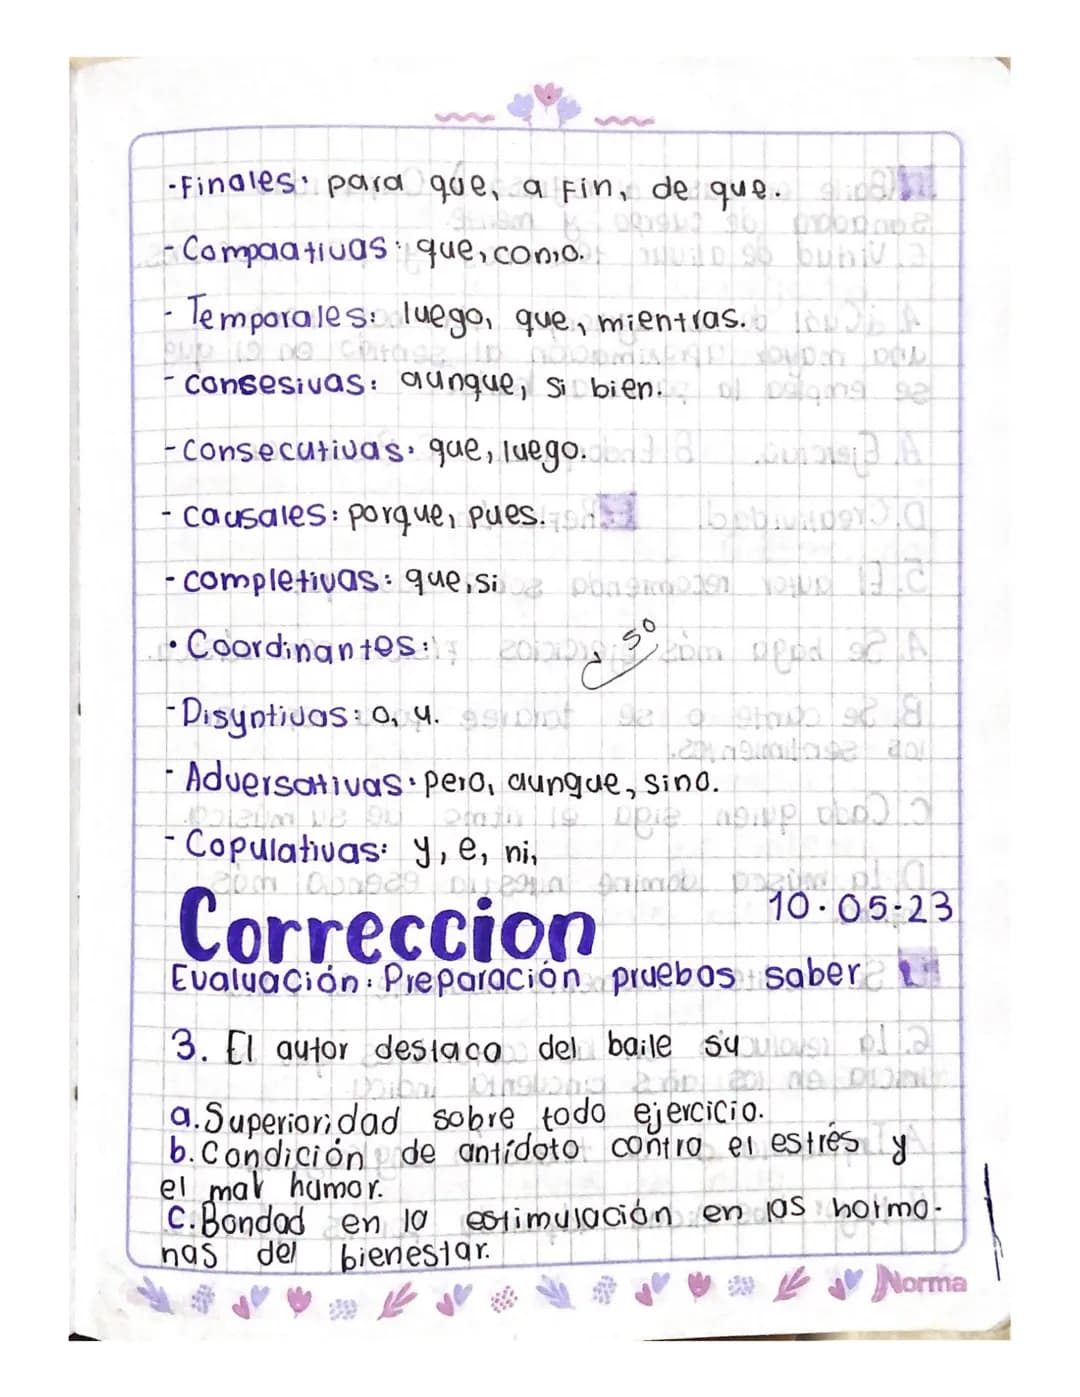 -Finales: para que, a fin, de que.
-Compaativas: que, como.
- Temporales: luego, que, mientras.
- consesivas: aunque, si bien.
-Consecutivas: que, luego.
- causales: porque, pues.
- completivas: que, si
• Coordinantes:
5º
-Disyntivas: o, u.
- Adversativas: pero, aunque, sino.
- Copulativas: y, e, ni,
Correccion
10.05.23
Evaluación: Preparación pruebas saber
3. El autor destaca del baile su
a. Superioridad sobre todo ejercicio.
b. Condición de antídoto contra el estrés y
el mal humor.
C. Bondad en la estimulación en las hormo-
nas del bienestar.
Norma